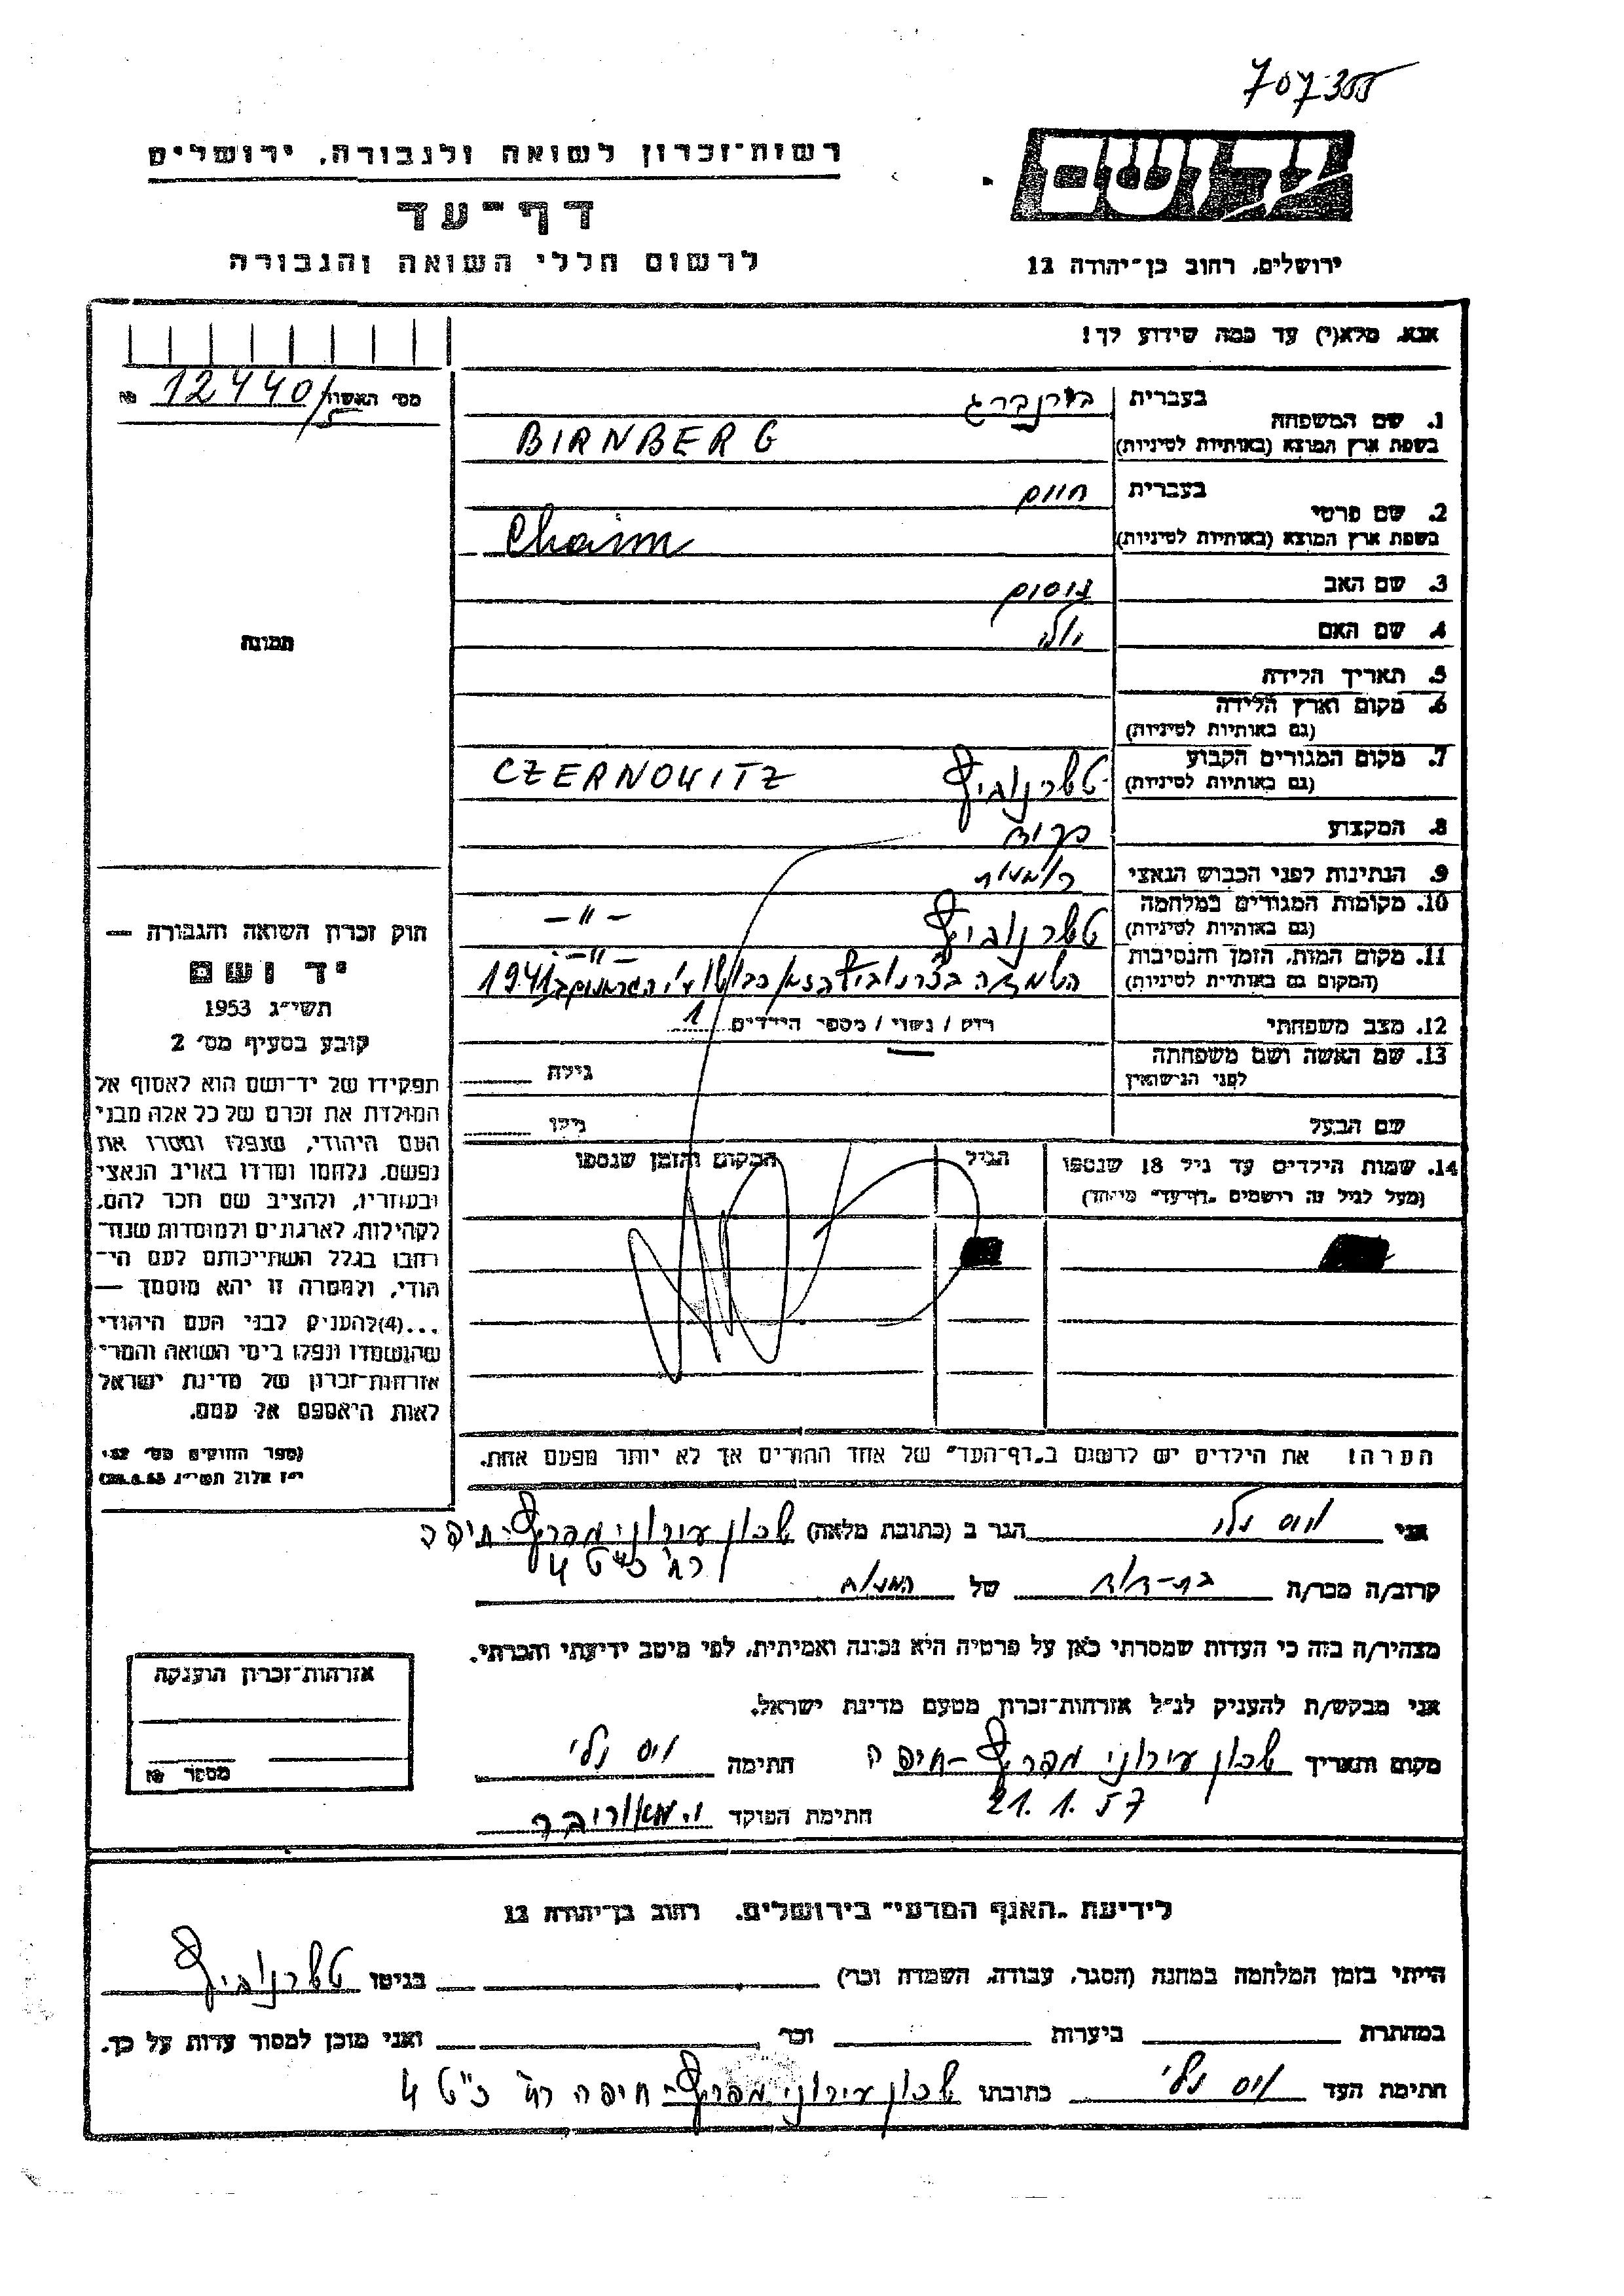 707355
רשות־זכרון לשואה ולגבורה, ירושלים
יד ושם
דף־עד
לרשום חללי השואה והגבורה
ירושלים, רחוב בן־יהודה 12
אנא, מלא(י) עד כמה שידוע לך!
מס׳ האשה 12440/5 №
בעברית בירנברג
1. שם המשפחה
בשפת ארץ המוצא (באותיות לטיניות) BIRNBERG
בעברית חיים
2. שם פרטי
בשפת ארץ המוצא (באותיות לטיניות) Chaim
3. שם האב ניסים
4. שם האם
5. תאריך הלידה
6. מקום וארץ הלידה
(גם באותיות לטיניות)
7. מקום המגורים הקבוע טשרנוביץ CZERNOWITZ
(גם באותיות לטיניות)
8. המקצוע
9. הנתינות לפני הכבוש הנאצי רומנית
10. מקומות המגורים במלחמה טשרנוביץ -"-
(גם באותיות לטיניות)
11. מקום המות, הזמן והנסיבות -"-
(המקום גם באותיות לטיניות) 1941
12. מצב משפחתי רוק / נשוי / מספר הילדים 1
13. שם האשה ושם משפחתה
לפני הנישואין
גילה
שם הבעל
גילו
14. שמות הילדים עד גיל 18 שנספו
(מעל לגיל זה רושמים "דף־עד" מיוחד)
הגיל
המקום והזמן שנספו
הערה: את הילדים יש לרשום ב"דף־העד" של אחד ההורים אך לא יותר מפעם אחת.
תמונה
חוק זכרון השואה והגבורה —
יד ושם
תשי״ג 1953
קובע בסעיף מס׳ 2
תפקידו של יד־ושם הוא לאסוף אל
המולדת את זכרם של כל אלה מבני
העם היהודי, שנפלו ומסרו את
נפשם, נלחמו ומרדו באויב הנאצי
ובעוזריו, ולהציב שם וזכר להם,
לקהילות, לארגונים ולמוסדות שנח־
רבו בגלל השתייכותם לעם הי־
הודי, ולמטרה זו יהא מוסמך —
...(4)להעניק לבני העם היהודי
שהושמדו ונפלו בימי השואה והמרי
אזרחות־זכרון של מדינת ישראל
לאות היאספם אל עמם.
(ספר החוקים מס׳ 132,
י״ז אלול תשי״ג 28.8.53)
אני וייס נלי הגר ב (כתובת מלאה) שכון עירוני מפרץ-חיפה
רח׳ כ"ט 4
קרוב/ה מכר/ה בת-דוד של המנוח
מצהיר/ה בזה כי העדות שמסרתי כאן על פרטיה היא נכונה ואמיתית, לפי מיטב ידיעתי והכרתי.
אני מבקש/ת להעניק לנ״ל אזרחות־זכרון מטעם מדינת ישראל.
מקום ותאריך שכון עירוני מפרץ-חיפה חתימה וייס נלי
21.1.57
חתימת הפוקד
אזרחות־זכרון הוענקה
מספר №
לידיעת "האגף המדעי" בירושלים, רחוב בן־יהודה 12
הייתי בזמן המלחמה במחנה (הסגר, עבודה, השמדה וכו׳) בגיטו טשרנוביץ
במחתרת ביערות וכו׳ ואני מוכן למסור עדות על כך.
חתימת העד וייס נלי כתובתו שכון עירוני מפרץ-חיפה רח׳ כ"ט 4